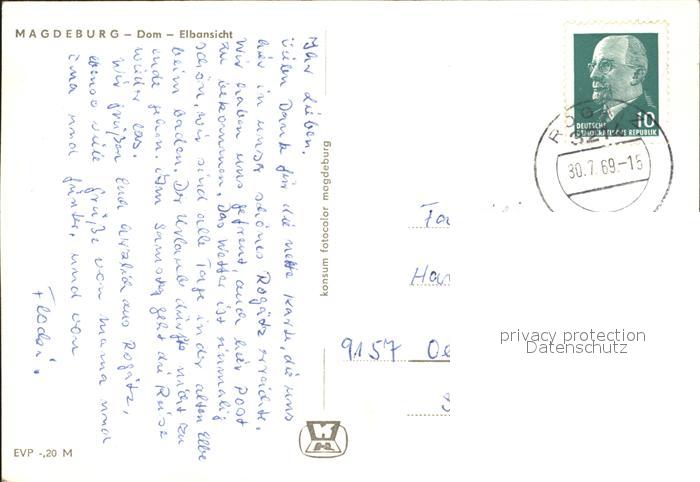 MAGDEBURG – Dom – Elbansicht
Ihr Lieben.
Vielen Dank für die nette Karte, die uns
hier in unser schönes Rogätz erreichte.
Wir haben uns gefreut, auch hier Post
zu bekommen. Das Wetter ist einmalig
schön, wir sind alle Tage in der alten Elbe
beim Baden. Der Urlaub dürfte nicht zu
ende gehen. Am Samstag geht die Reise
wieder los.
Wir grüßen Euch herzlich aus Rogätz,
ebenso viele Grüße von Mama und
und von
EVP -,20 M
konsum fotocolor magdeburg
10
DEUTSCHE
DEMOKRATISCHE REPUBLIK
30.7.69.-15
Fa
Ha
9157 Oe
privacy protection
Datenschutz